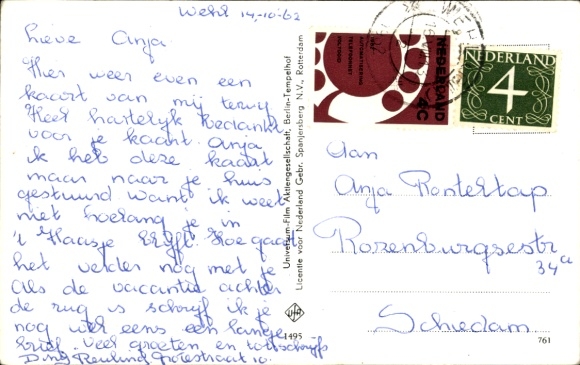 Wehl 14-10-62
Lieve Anja
Hier weer even een
kaart van mij terug
Heel hartelijk bedankt
voor je kaart. Anja
ik heb deze kaart
maar naar je huis
gestuurd want ik weet
niet hoelang je in
't Haasje blijft. Hoe gaat
het verder nog met je
Als de vacantie achter
de rug is schrijf ik je
nog wel eens een lange
brief. Veel groeten en tot schrijfs
Grotestraat 10.
Universum-Film Aktiengesellschaft, Berlin-Tempelhof
Licentie voor Nederland Gebr. Spanjersberg N.V., Rotterdam
Ufa
1495
1962
AUTOMATISERING
TELEFOONNET
VOLTOOID
NEDERLAND
4C
WEHL
NEDERLAND
4
CENT
Aan
Anja
Rozenburgsestr
34a
Schiedam
761